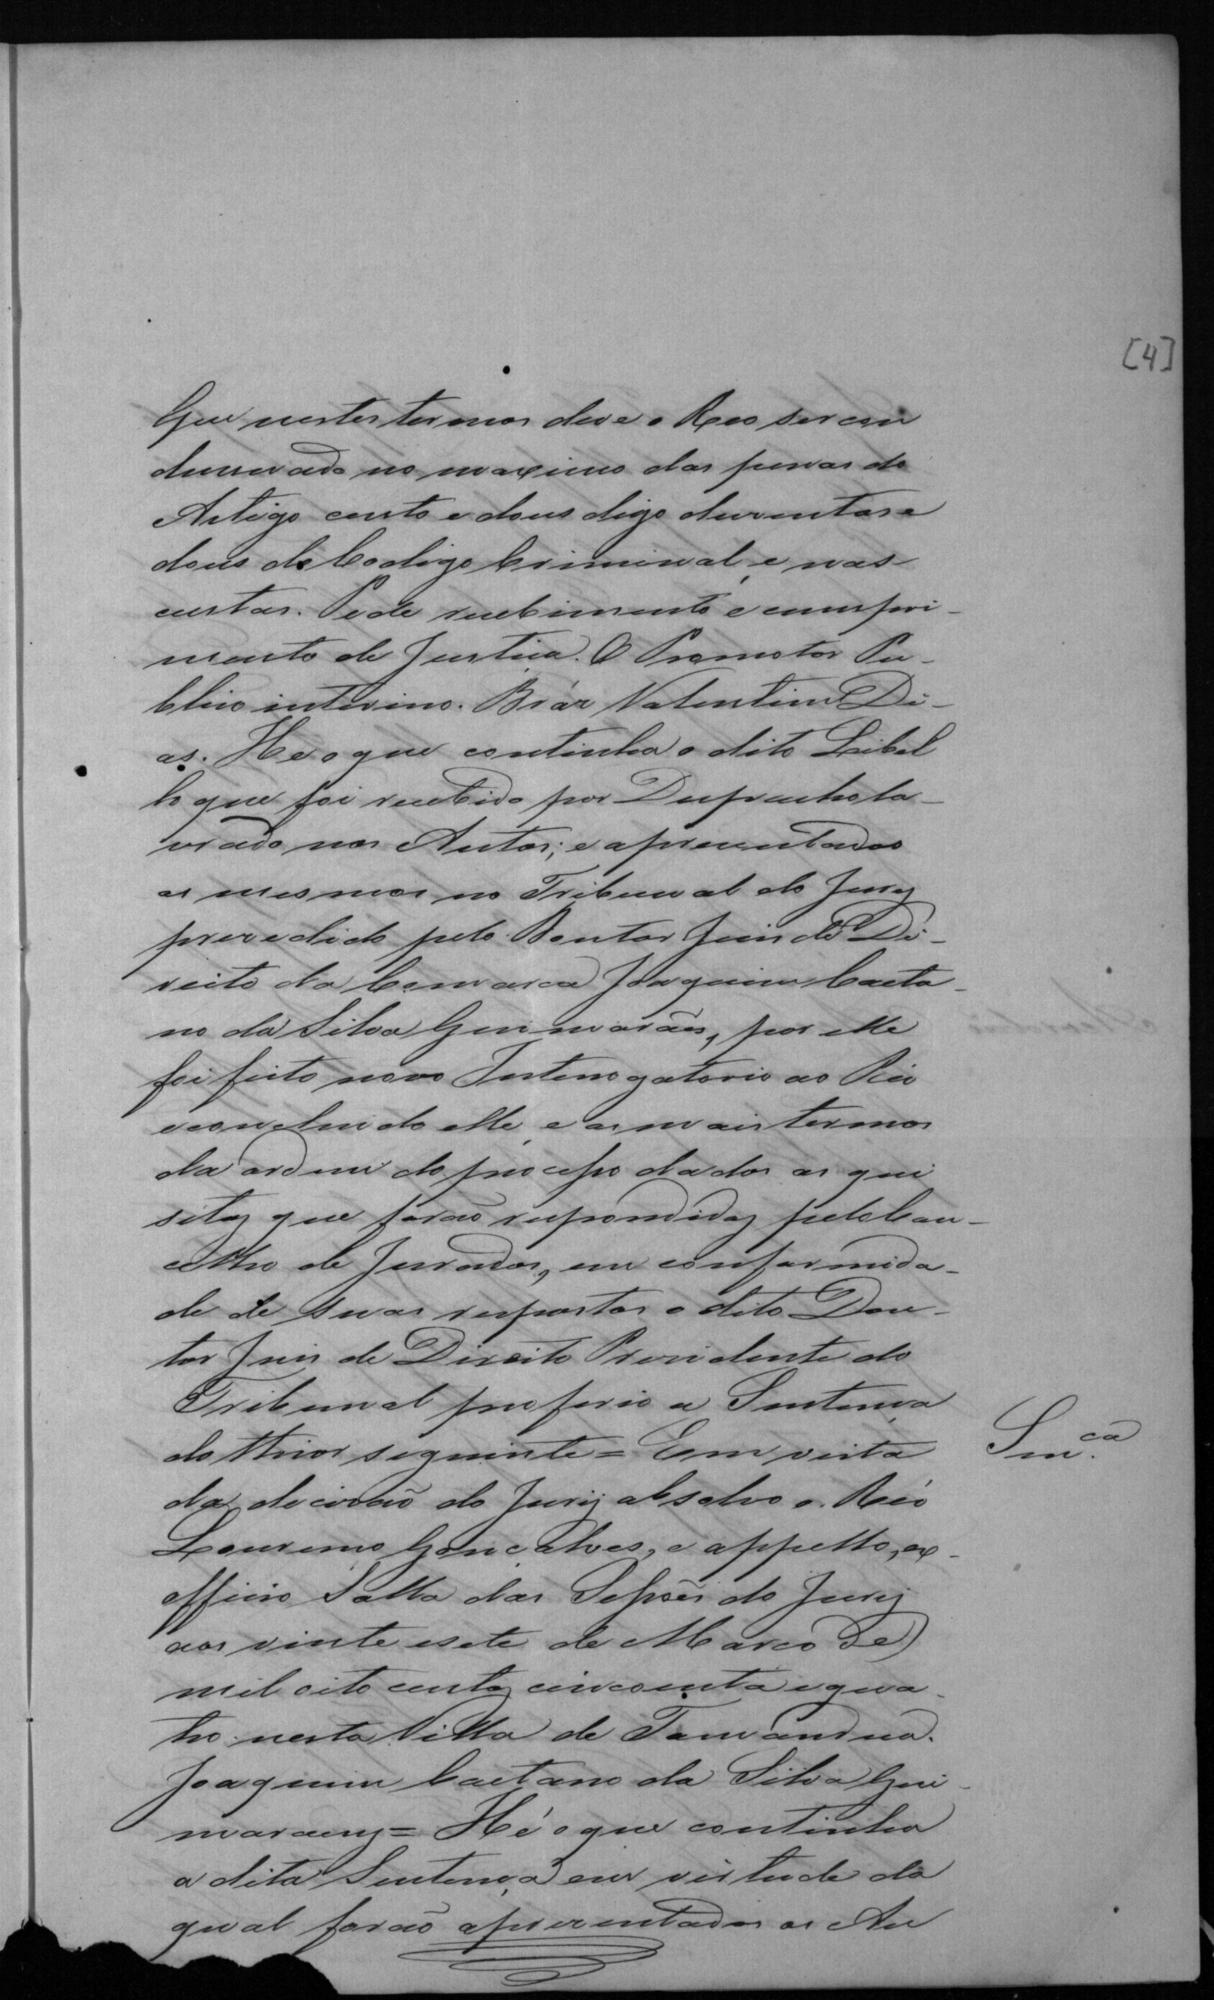 [4]
Que nestes termos deve o Reo ser con
demnado no maximo das penas do
Artigo cento e dous digo duzentos e
dous do Codigo Criminal, e nas
custas. Pede recebimento e cumpri-
mento de Justiça. O Promotor Pu-
blico interino. Bráz Valentim Di-
as. He o que continha o dito Libel
lo que foi recebido por Despacho la-
vrado nos Autos; e apresentados
os mesmos no Tribunal do Jury
prezedido pelo Doutor Juis de Di-
reito da Comarca Joaquim Caeta-
no da Silva Guimarães, por elle
foi feito novo Interrogatorio ao Réo
e concluido elle, e os mais termos
da ordem do processo dados os qui
sitos que forão respondidos pelo Con-
celho de Jurados, em conformida-
de de suas respostas o dito Dou-
tor Juis de Direito Presidente do
Tribunal proferio a Sentença
do theor seguinte = Em vista
Snᶜᵃ.
da decisão do Jury absolvo o Réo
Lourenço Gonçalves, e appello, ex-
officio Salla das Sessões do Jury
aos vinte e sete de Março de
mil oito centos cincoenta e qua-
tro nesta Villa de Tamanduá.
Joaquim Caetano da Silva Gui-
maraens = Hé o que continha
a dita Sentença em virtude da
qual forão apresentados os Au